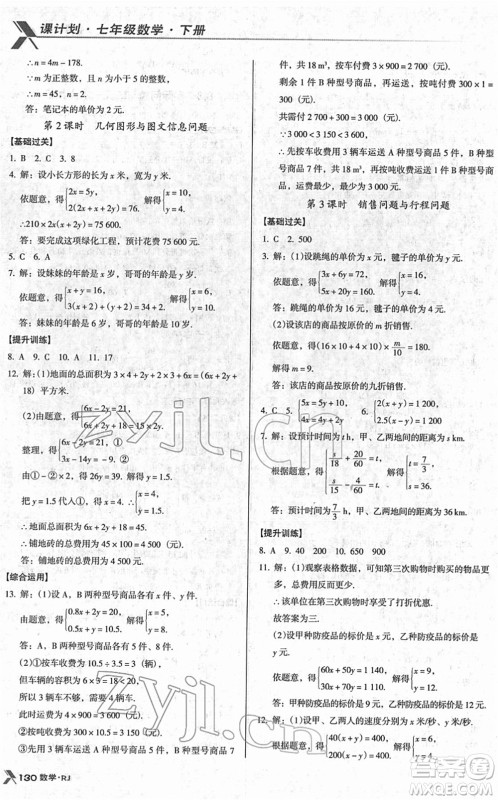 课计划·七年级数学·下册
∴n=4m-178.
∵m为正整数，且m为小于5的整数，
∴m=2.
答：笔记本的单价为2元.
第2课时　几何图形与图文信息问题
【基础过关】
1. B　2. C　3. 8
4. 解：设小长方形的长为x米，宽为y米.
依题意，得{2x=5y, 2(2x+x+2y)=76, 解得{x=10, y=4.
∴210×2x(x+2y)=75 600.
答：要完成这项绿化工程，预计花费75 600元.
5. C　6. A
7. 解：设妹妹的年龄是x岁，哥哥的年龄是y岁.
依题意，得{x+y=16, 3(x+2)+(y+2)=34+2, 解得{x=6, y=10.
答：妹妹的年龄是6岁，哥哥的年龄是10岁.
【提升训练】
8. A　9. C　10. A　11. 17
12. 解：(1)地面的总面积为3×4+2y+2×3+6x=(6x+2y+
18)平方米.
(2)由题意，得{6x-2y=21, 6x+2y+18=15×2y,
整理，得{6x-2y=21,① 3x-14y=-9.②
由①-②×2，得26y=39，解得y=1.5.
把y=1.5代入①，得x=4.
∴地面总面积为6x+2y+18=45(平方米).
∴铺地砖的总费用为45×100=4 500(元).
答：铺地砖的总费用为4 500元.
【综合运用】
13. 解：(1)设A，B两种型号商品各有x件，y件.
由题意，得{0.8x+2y=20, 0.5x+y=10.5, 解得{x=5, y=8.
答：A，B两种型号商品各有5件，8件.
(2)①按车收费为10.5÷3.5=3(辆)，
但是车辆的容积为6×3=18<20，
所以3辆车不够，需要4辆车.
此时运费为4×900=3 600(元).
②按吨收费为300×10.5=3 150(元).
③先用3辆车运送A种型号商品5件，B种型号商品7
件，共18 m³，按车付费3×900=2 700(元).
剩余1件B种型号商品，再运送，按吨付费300×1=
300(元).
共需付2 700+300=3 000(元).
∵3 000<3 150<3 600，
∴先按车收费用3辆车运送A种型号商品5件，B种型
号商品7件，共18 m³，剩余1件B种型号商品按吨收费
运送，运费最少为3 000元.
第3课时　销售问题与行程问题
【基础过关】
1. C　2. 500
3. 解：(1)设跳绳的单价为x元，毽子的单价为y元.
依题意，得{3x+6y=72, 10x+5y=120, 解得{x=8, y=8.
答：跳绳的单价为8元，毽子的单价为8元.
(2)设该店的商品按原价的m折销售.
依题意，得(10×8+10×8)×m/10=144.
解得m=9.
答：该店的商品按原价的九折销售.
4. C　5. {5x=5y+10, 4x=4y+2y　6. {2(x+y)=1 200, 2.5(x-y)=1 200
7. 解：设预计时间为t h，甲、乙两地间的距离为s km.
根据题意，得{s/18+20/60=t, s/15-4/60=t. 解得{t=7/3, s=36.
答：预计时间为7/3 h，甲、乙两地间的距离为36 km.
【提升训练】
8. A　9. 40　200　10. 650　900
11. 解：(1)观察表格数据，可知第三次购物时购买的物品更
多，但总费用更少，
∴该单位在第三次购物时享受了打折优惠.
故答案为三.
(2)设甲种防疫品的标价是x元，乙种防疫品的标价是
y元.
依题意，得{60x+50y=1 140, 30x+70y=1 110, 解得{x=9, y=12.
答：甲种防疫品的标价是9元，乙种防疫品的标价是
12元.
12. 解：(1)设甲、乙两人的速度分别为x米/秒，y米/秒.
根据题意，得{40(x+y)=400, 200(x-y)=400, 解得{x=6, y=4.
答：甲的速度为6米/秒，乙的速度为4米/秒.
130 数学·RJ